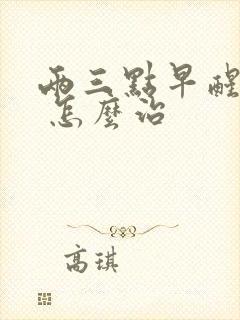 兩三點早醒
怎麼治
高琪